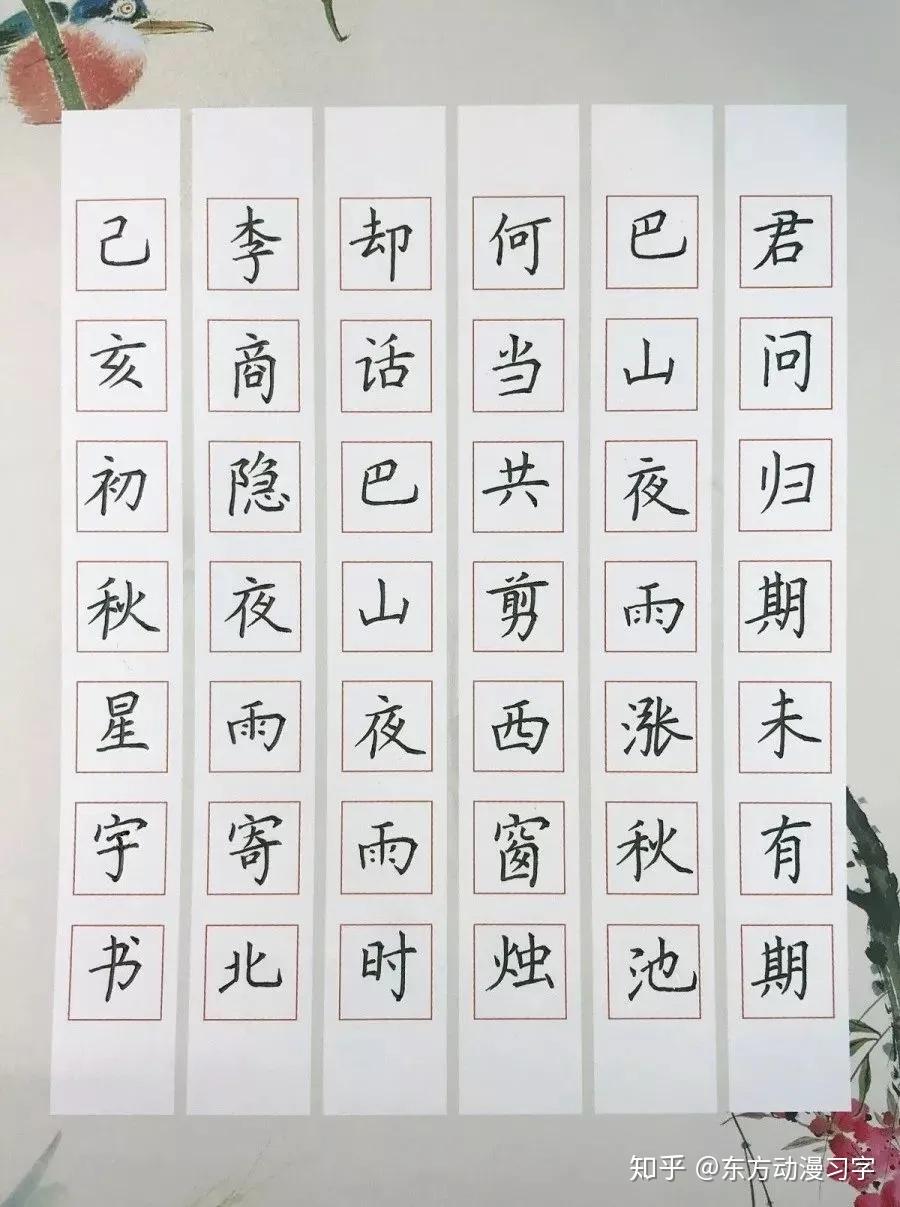 君问归期未有期
巴山夜雨涨秋池
何当共剪西窗烛
却话巴山夜雨时
李商隐夜雨寄北
己亥初秋星宇书
知乎 @东方动漫习字